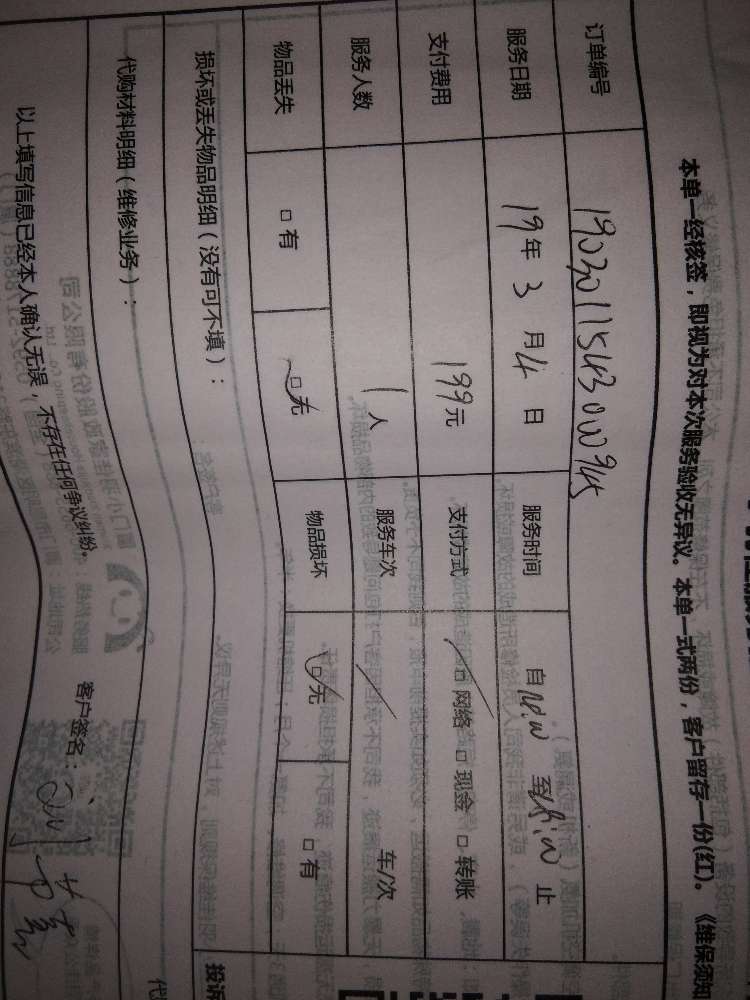 本单一经核签，即视为对本次服务验收无异议。本单一式两份，客户留存一份(红)。《维保须知
订单编号 190301154300945
服务日期 19年 3月 4日 服务时间 自 至 止
支付费用 199元 支付方式 □网络 □现金 □转账
服务人数 1人 服务车次 / 车/次
物品丢失 □有 □无 物品损坏 □无 □有
损坏或丢失物品明细（没有可不填）：
代购材料明细（维修业务）：
以上填写信息已经本人确认无误，不存在任何争议纠纷。 客户签名：
投诉